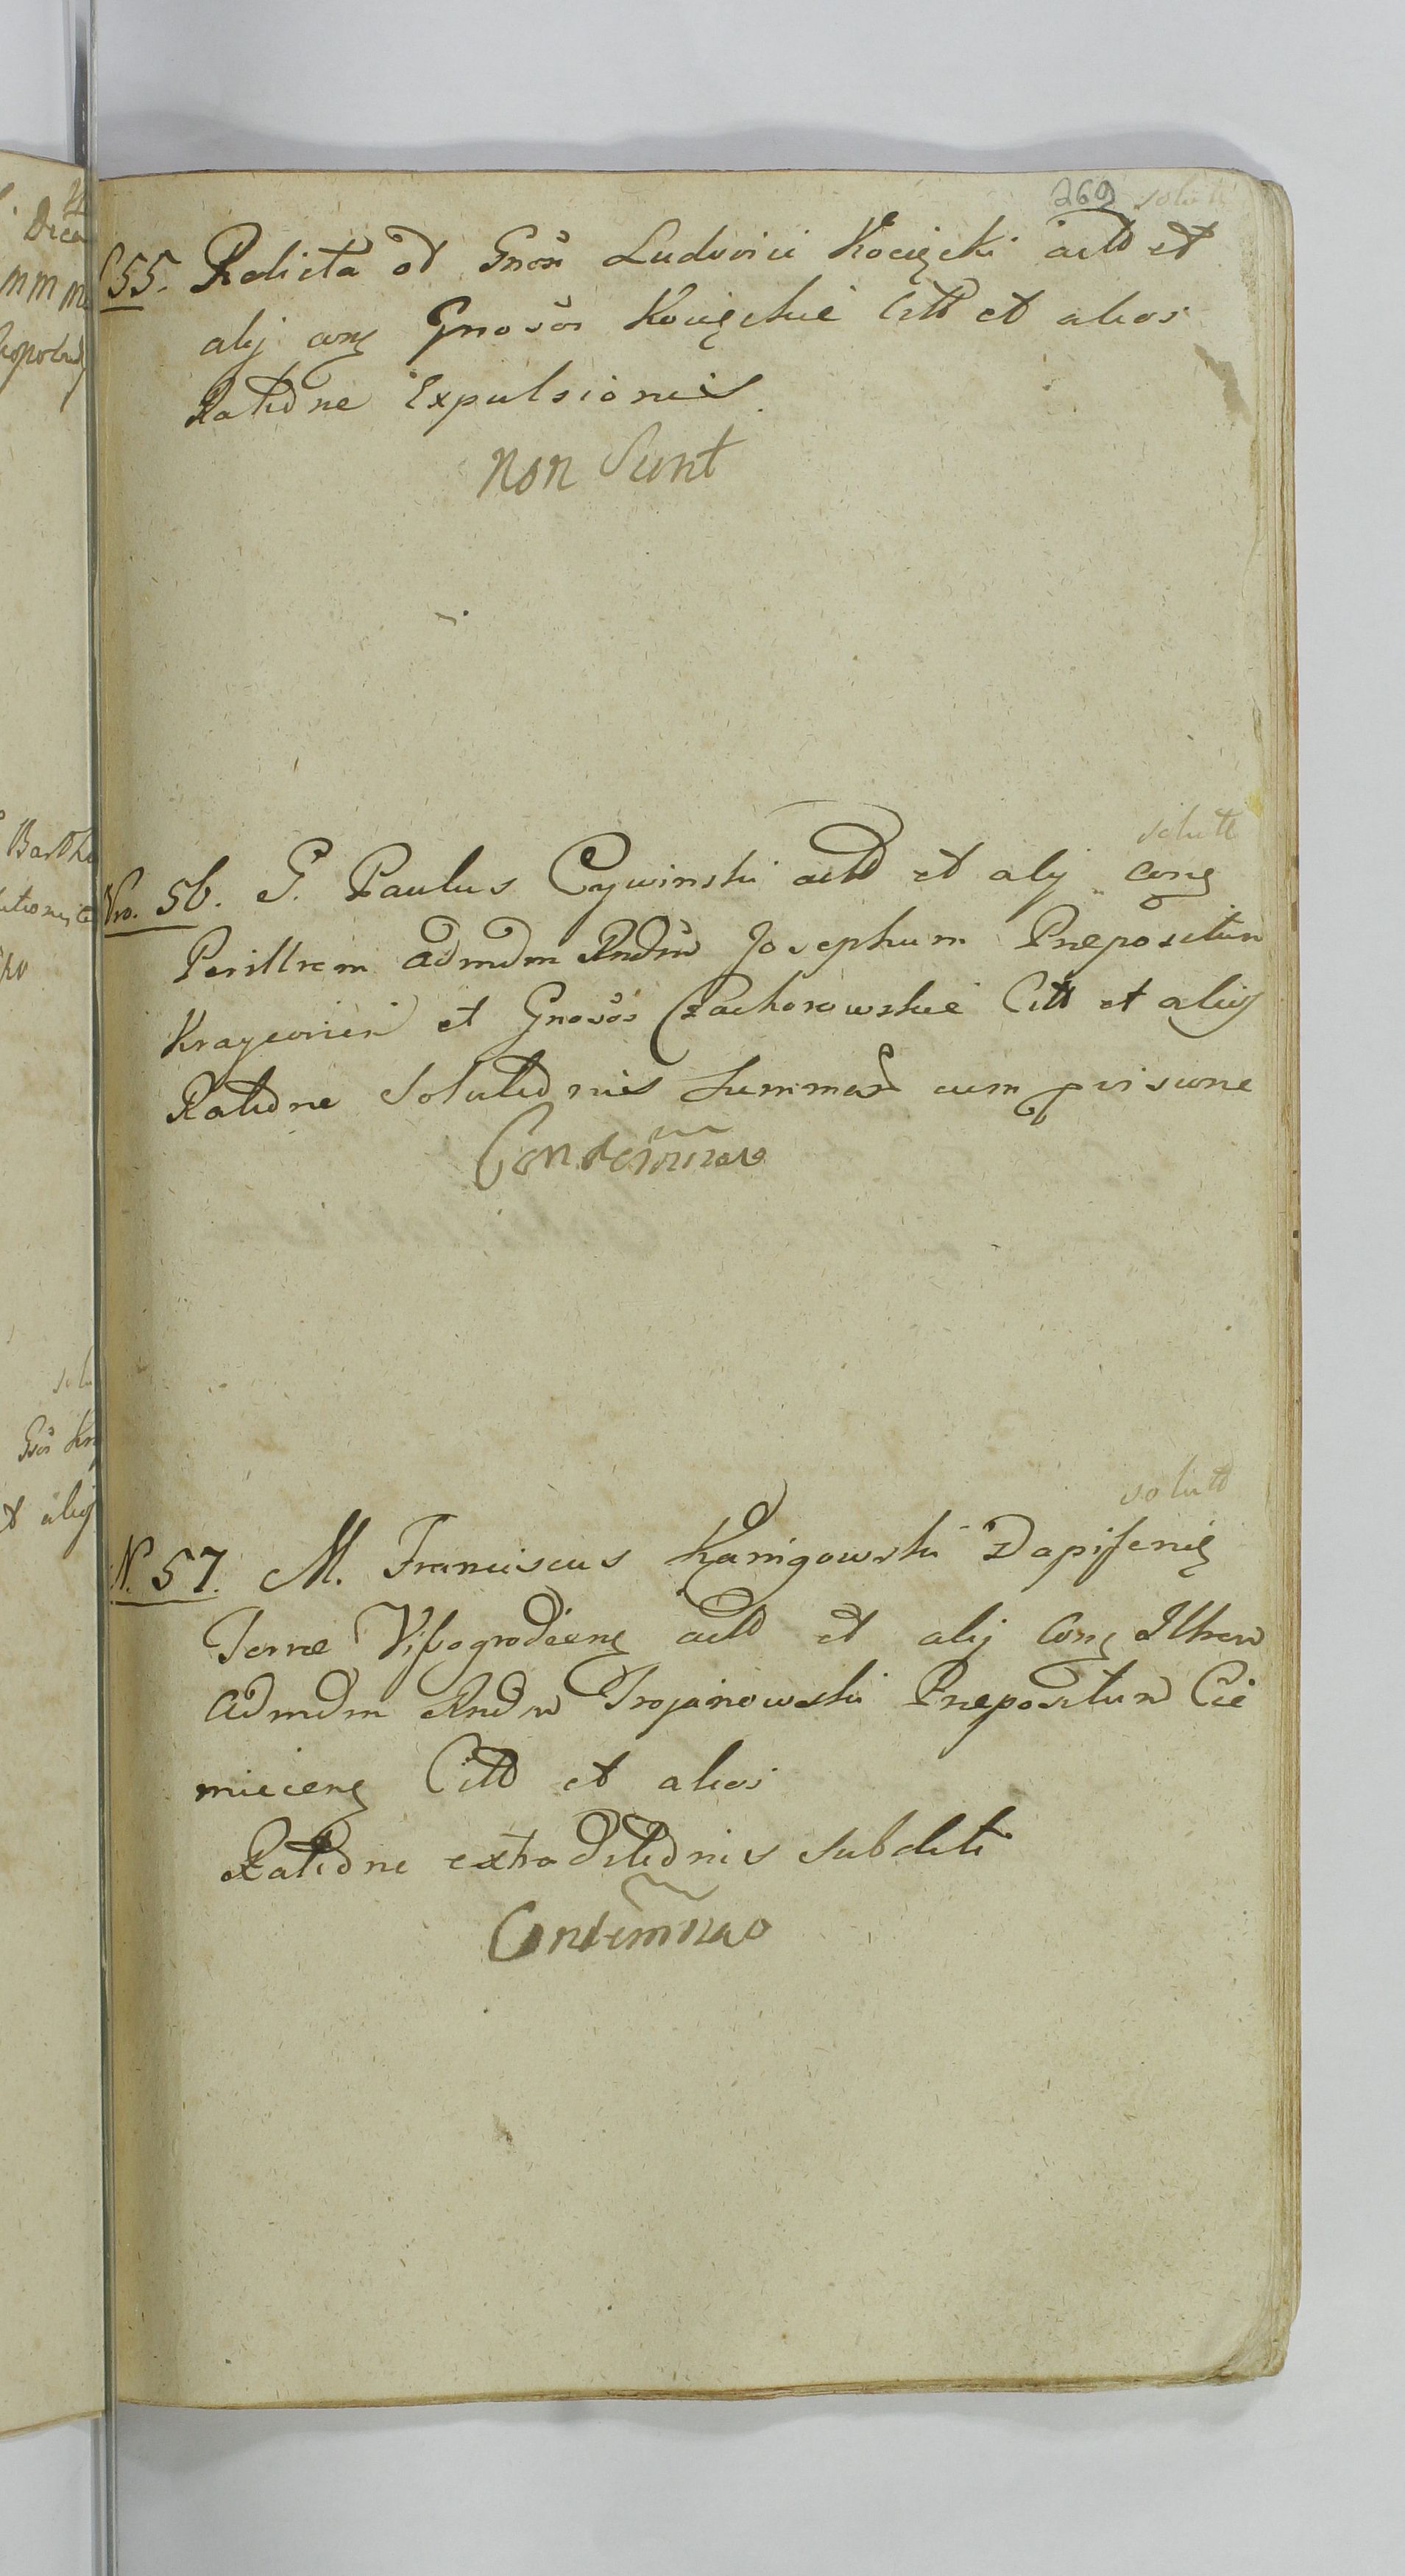 269 solutt
55. Relicta ol Gnosi Ludovici Kocięcki actt et
alij cons Gnosos Kocięckie Citt et alios
Ratione Expulsionis
non Sunt
solutt
Nro. 56. G. Paulus Cywinski actt et alij cons
Perillrem admdm Rndm Josephum Præpositum
et Gnosos Czachorowskie Citt et alios
Ratione Solutionis Summar cum pvisione
Condemnao
solutt
N. 57. M. Franciscus Kanigowski Dapifer
Terræ Vissogrodiens actt et alij cons Illrem
admdm Rndm Trojanowski Præpositum Cie
miciens Citt et alios
Ratione extraditionis subditi
Condemnao